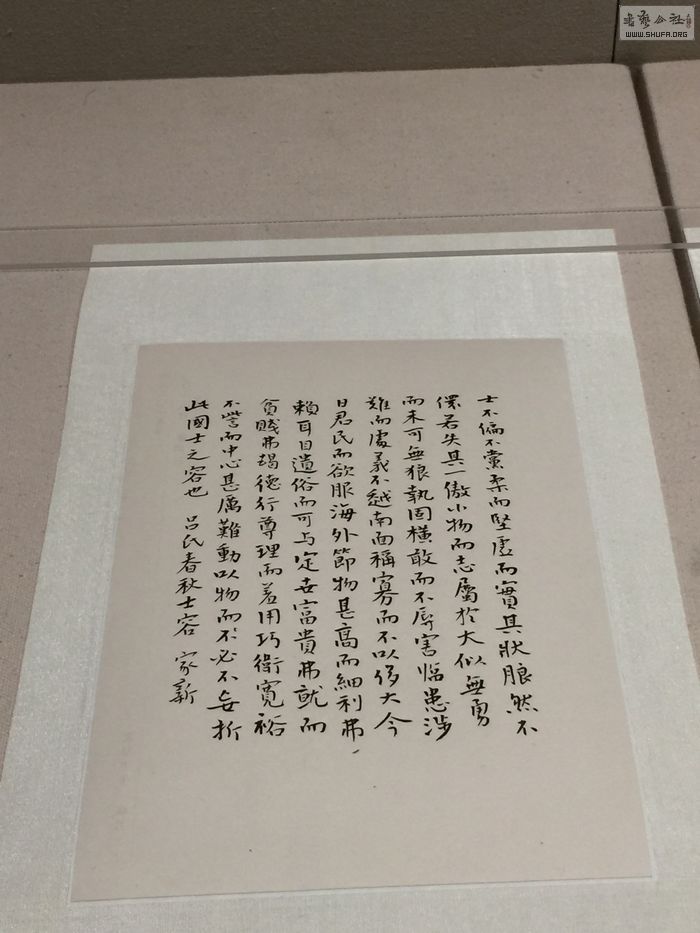 士不偏不黨柔而堅虛而實其狀朖然不
儇若失其一傲小物而志屬於大似無勇
而未可無狼執固橫敢而不辱害臨患涉
難而處義不越南面稱寡而不以侈大今
日君民而欲服海外節物甚高而細利弗
賴耳目遺俗而可与定世富貴弗就而
貧賤弗朅德行尊理而羞用巧衛寬裕
不訾而中心甚厲難動以物而不必不妄折
此國士之容也 呂氏春秋士容 家新
書藝公社
WWW.SHUFA.ORG